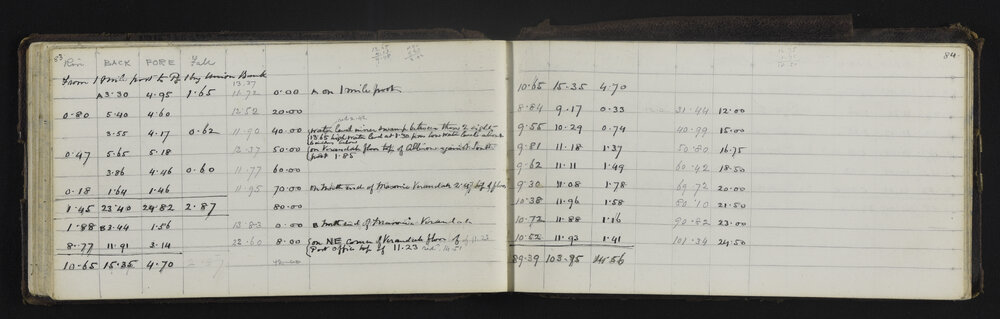 83
Rise BACK FORE Fall
From 1 mile post to by Union Bank
13.27
A 3.30 4.95 1.65 11.72 0.00 A on 1 mile post
0.80 5.40 4.60 12.52 20.00
3.55 4.17 0.62 11.90 40.00
0.47 5.65 5.18 12.37 50.00 on Verandah floor top of Albion against
post 1.85
3.86 4.46 0.60 11.77 60.00
0.18 1.64 1.46 11.95 70.00 on North end of Masonic Verandah top of floor
1.45 23.40 24.82 2.87 80.00
1.88 B3.44 1.56 13.83 0.00 B North end of Masonic Verandah
8.77 11.91 3.14 22.60 8.00 on NE corner of Verandah floor of
Post Office top of 11.23
10.65 15.35 4.70 2.87
84
10.65 15.35 4.70
8.84 9.17 0.33 31.44 12.00
9.55 10.29 0.74 40.99 15.00
9.81 11.18 1.37 50.80 16.75
9.62 11.11 1.49 60.42 18.50
9.30 11.08 1.78 69.72 20.00
10.38 11.96 1.58 80.10 21.50
10.72 11.88 1.16 90.82 23.00
10.52 11.93 1.41 101.34 24.50
89.39 103.95 14.56